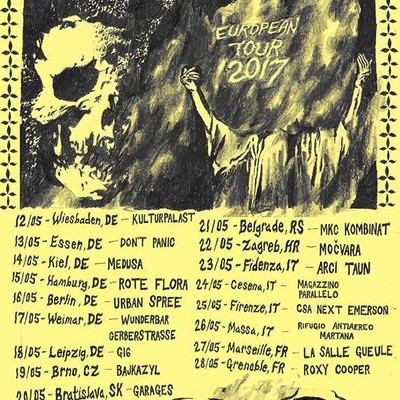 EUROPEAN
TOUR
2017
12/05 - Wiesbaden, DE - KULTURPALAST
13/05 - Essen, DE - DON'T PANIC
14/05 - Kiel, DE - MEDUSA
15/05 - Hamburg, DE - ROTE FLORA
16/05 - Berlin, DE - URBAN SPREE
17/05 - Weimar, DE - WUNDERBAR
GERBERSTRASSE
18/05 - Leipzig, DE - GIG
19/05 - Brno, CZ - BAJKAZYL
20/05 - Bratislava, SK - GARAGES
21/05 - Belgrade, RS - MKC KOMBINAT
22/05 - Zagreb, HR - MOČVARA
23/05 - Fidenza, IT - ARCI TAUN
24/05 - Cesena, IT - MAGAZZINO
PARALLELO
25/05 - Firenze, IT - CSA NEXT EMERSON
26/05 - Massa, IT - RIFUGIO ANTIAEREO
MARTANA
27/05 - Marseille, FR - LA SALLE GUEULE
28/05 - Grenoble, FR - ROXY COOPER